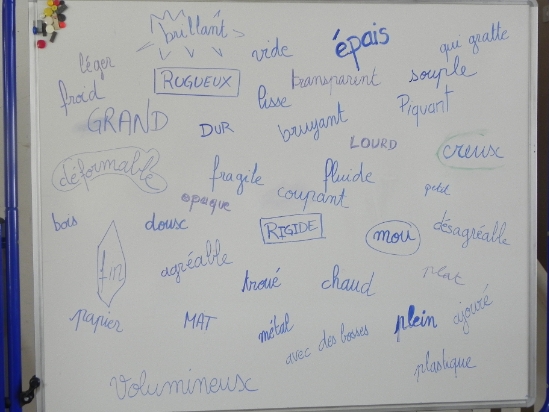 brillant
vide
épais
qui gratte
léger
RUGUEUX
transparent
souple
froid
lisse
Piquant
GRAND
DUR
bruyant
LOURD
creux
déformable
fragile
fluide
opaque
coupant
petit
bois
doux
RIGIDE
mou
désagréable
fin
agréable
troué
chaud
plat
papier
MAT
métal
avec des bosses
plein
ajouré
plastique
Volumineux